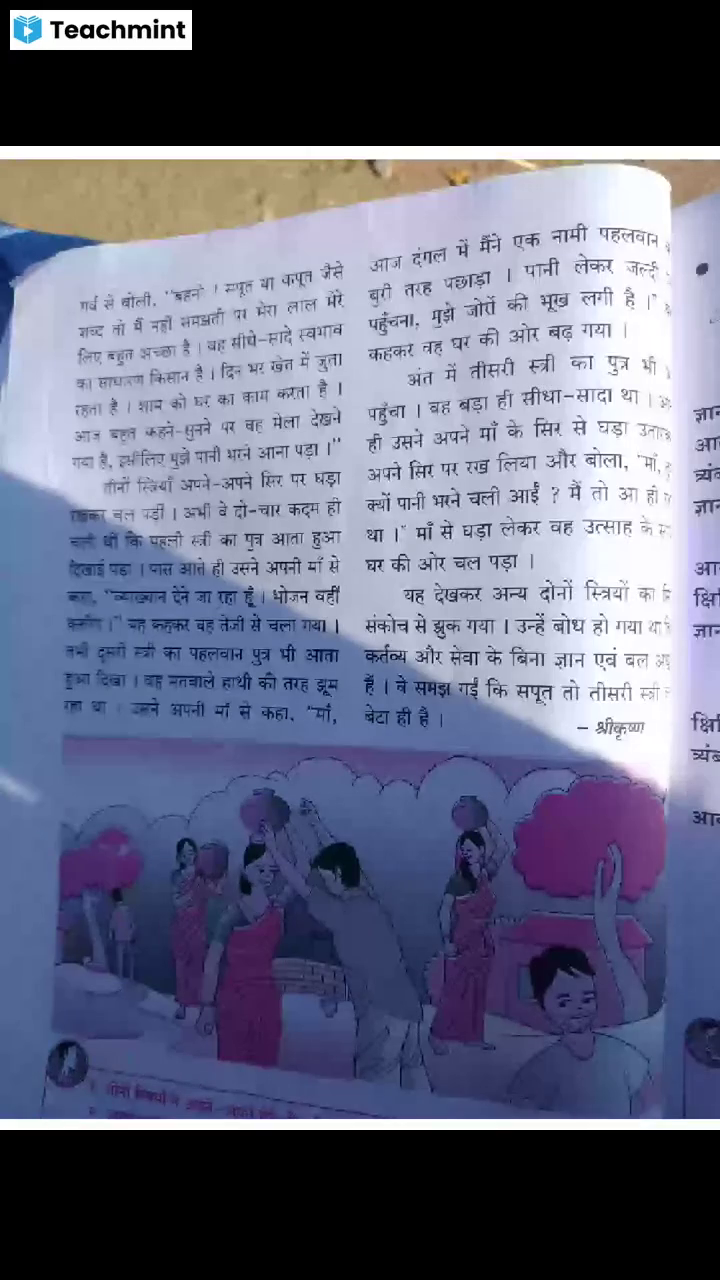 Teachmint
गर्व से बोली, “बहनो ! सपूत या कपूत जैसे
शब्द तो मैं नहीं समझती पर मेरा लाल मेरे
लिए बहुत अच्छा है । वह सीधे-सादे स्वभाव
का साधारण किसान है । दिन भर खेत में जुता
रहता है । शाम को घर का काम करता है ।
आज बहुत कहने-सुनने पर वह मेला देखने
गया है, इसीलिए मुझे पानी भरने आना पड़ा ।”
तीनों स्त्रियाँ अपने-अपने सिर पर घड़ा
रखकर चल पड़ीं । अभी वे दो-चार कदम ही
चली थीं कि पहली स्त्री का पुत्र आता हुआ
दिखाई पड़ा । पास आते ही उसने अपनी माँ से
कहा, “व्याख्यान देने जा रहा हूँ । भोजन वहीं
करूँगा ।” यह कहकर वह तेजी से चला गया ।
तभी दूसरी स्त्री का पहलवान पुत्र भी आता
हुआ दिखा । वह मतवाले हाथी की तरह झूम
रहा था । उसने अपनी माँ से कहा, “माँ,
आज दंगल में मैंने एक नामी पहलवान
बुरी तरह पछाड़ा । पानी लेकर जल्दी
पहुँचना, मुझे जोरों की भूख लगी है ।”
कहकर वह घर की ओर बढ़ गया ।
अंत में तीसरी स्त्री का पुत्र भी
पहुँचा । वह बड़ा ही सीधा-सादा था ।
ही उसने अपने माँ के सिर से घड़ा
अपने सिर पर रख लिया और बोला, “माँ,
क्यों पानी भरने चली आईं ? मैं तो आ ही
था ।” माँ से घड़ा लेकर वह उत्साह के
घर की ओर चल पड़ा ।
यह देखकर अन्य दोनों स्त्रियों का
संकोच से झुक गया । उन्हें बोध हो गया था
कर्तव्य और सेवा के बिना ज्ञान एवं बल
हैं । वे समझ गईं कि सपूत तो तीसरी स्त्री
बेटा ही है ।
– श्रीकृष्ण